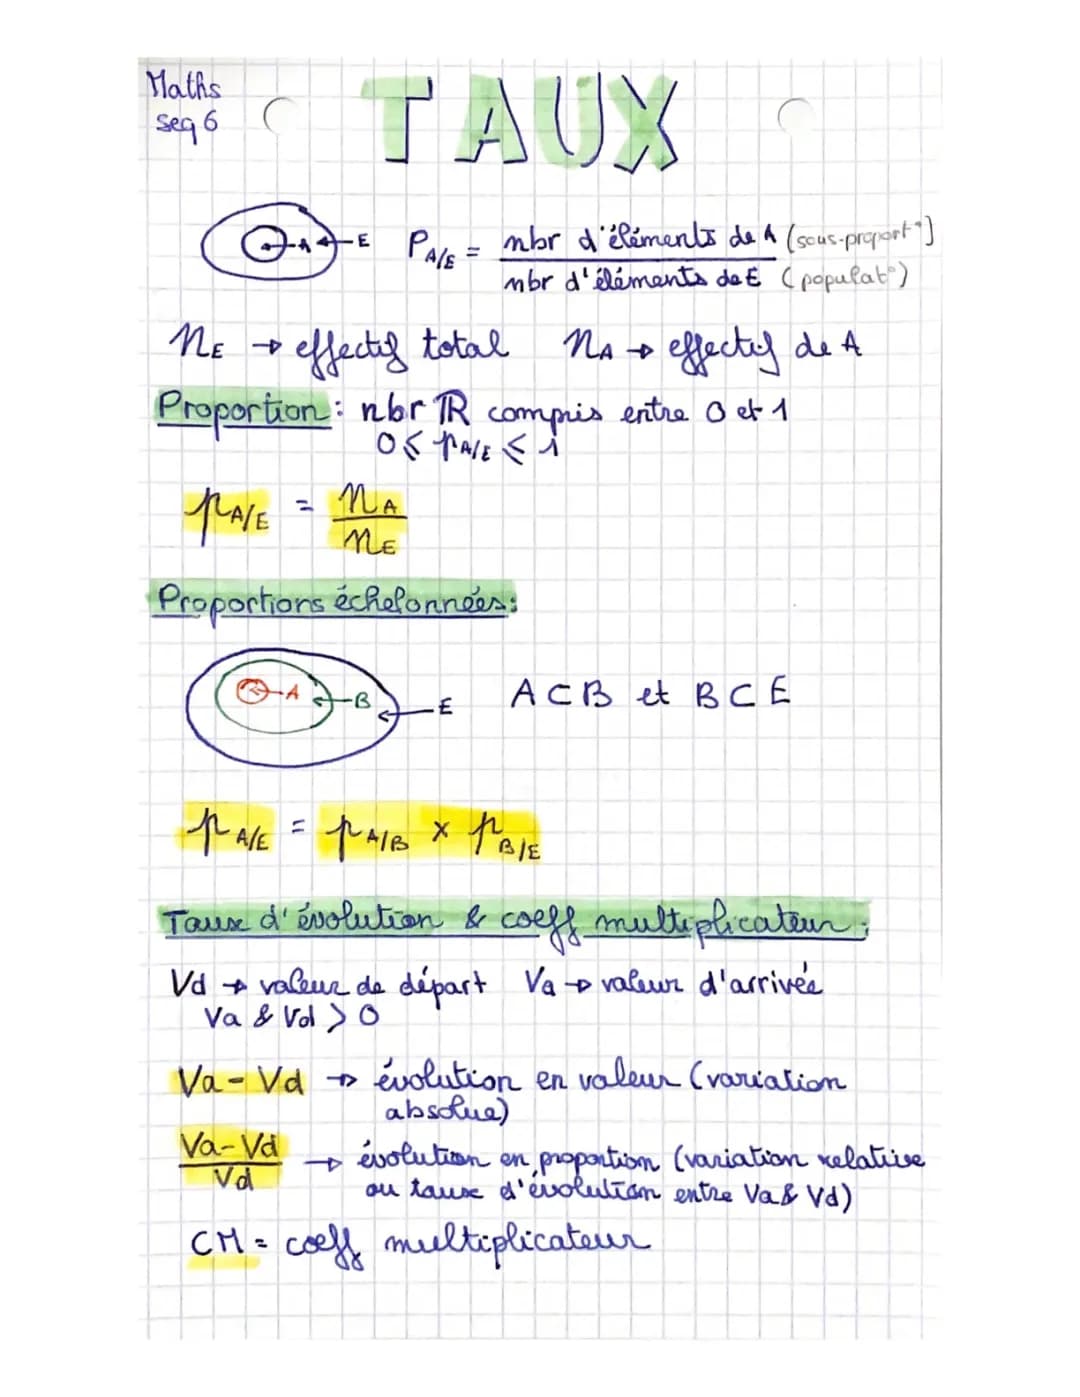 Maths
seq 6
TAUX
A E
P A/E = nbr d'éléments de A (sous-proport°)
nbr d'éléments de E (populat°)
nE → effectif total nA → effectif de A
Proportion : nbr ℝ compris entre 0 et 1
0 ⩽ pA/E ⩽ 1
pA/E = nA
nE
Proportions échelonnées :
A B E A⊂B et B⊂E
pA/E = pA/B × pB/E
Taux d'évolution & coeff multiplicateur :
Vd → valeur de départ Va → valeur d'arrivée
Va & Vd > 0
Va - Vd → évolution en valeur (variation
absolue)
Va - Vd → évolution en proportion (variation relative
Vd ou taux d'évolution entre Va & Vd)
CM = coeff multiplicateur